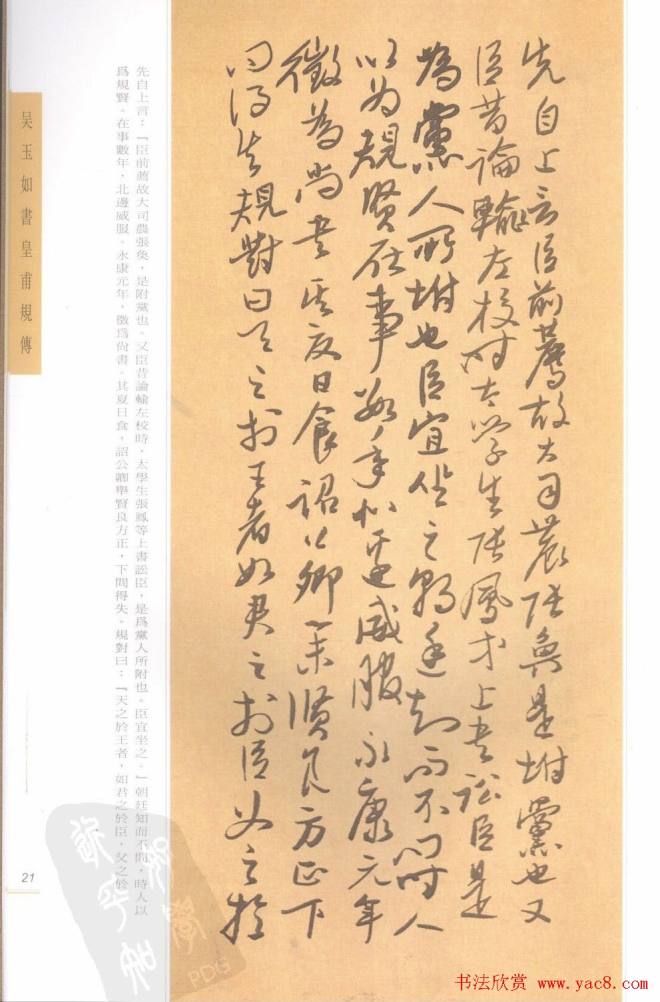 先自上言臣前薦故大司農張奐是坿黨也又
臣昔論輸左校時太學生張鳳等上書訟臣是
為黨人所坿也臣宜坐之朝廷知而不問時人
以為規賢在事數年北邊威服永康元年
徵為尚書其夏日食詔公卿舉賢良方正下
問得失規對曰天之於王者如君之於臣父之於
先自上言：「臣前薦故大司農張奐，是附黨也。又臣昔論輸左校時，太學生張鳳等上書訟臣，是爲黨人所附也。臣宜坐之。」朝廷知而不問，時人以
爲規賢。在事數年，北邊威服。永康元年，徵爲尚書。其夏日食，詔公卿舉賢良方正，下問得失。規對曰：「天之於王者，如君之於臣，父之於
吴玉如書皇甫規傳
21
PDG
书法欣赏 www.yac8.com